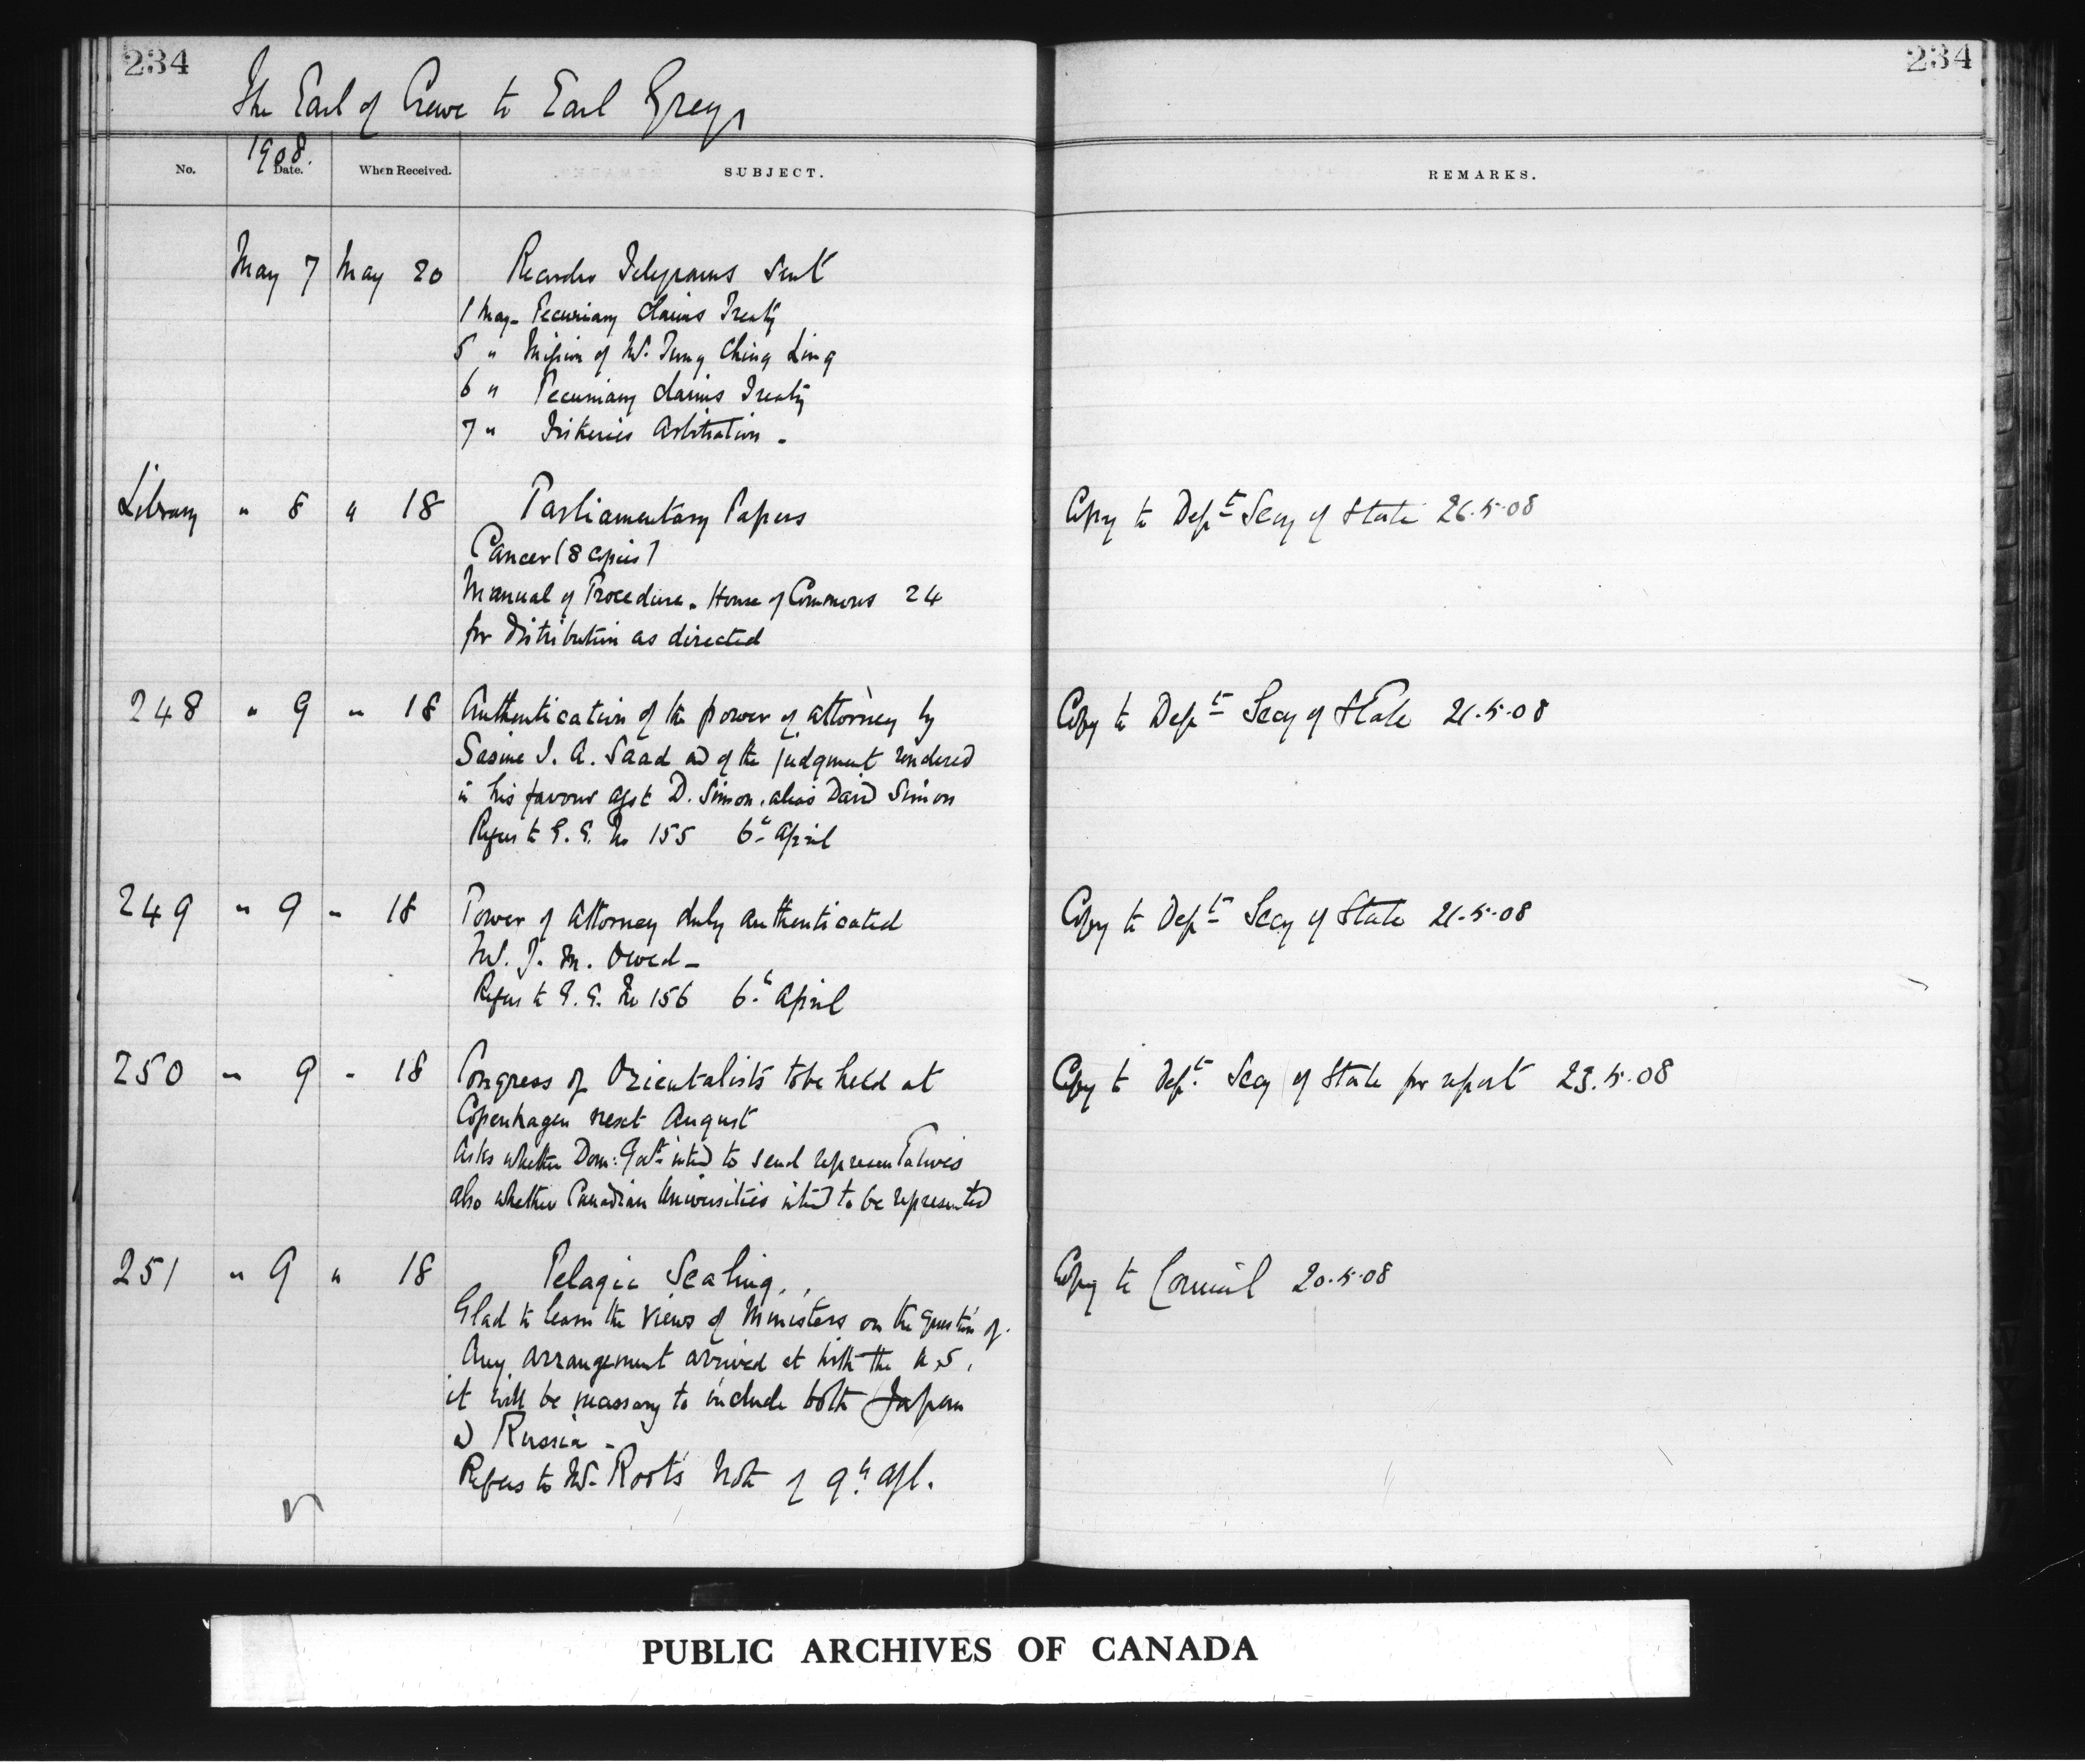 234
234
The Earl of Crewe to Earl Grey
1908.
No.
Date.
When Received.
SUBJECT.
REMARKS.
May 7 May 20 Records Telegrams sent
1 May - Pecuniary Claims Treaty
5 " Mission of Mr. Tung Ching Ling
6 " Pecuniary Claims Treaty
7 " Fisheries Arbitration -
Library " 8 " 18 Parliamentary Papers Copy to Dept Secy of State 26.5.08
Cancer (8 copies)
Manual of Procedure - House of Commons 24
for distribution as directed
248 " 9 " 18 Authentication of the power of attorney by Copy to Dept Secy of State 21.5.08
J. A. Saad and of the judgment rendered
in his favour agst D. Simon, alias David Simon
Refers to G. G. No 155 6th April
249 " 9 " 18 Power of Attorney duly authenticated Copy to Dept Secy of State 21.5.08
Mr. J. M.
Refers to G. G. No 156 6th April
250 " 9 " 18 Congress of Orientalists to be held at Copy to Dept Secy of State for report 23.5.08
Copenhagen next August
Asks whether Dom: Govt intend to send representatives
also whether Canadian Universities intend to be represented
251 " 9 " 18 Pelagic Sealing. Copy to Council 20.5.08
Glad to learn the views of Ministers on the question of.
Any arrangement arrived at with the U.S.,
it will be necessary to include both Japan
and Russia -
Refers to Mr. Root's Note of 9th Apl.
PUBLIC ARCHIVES OF CANADA